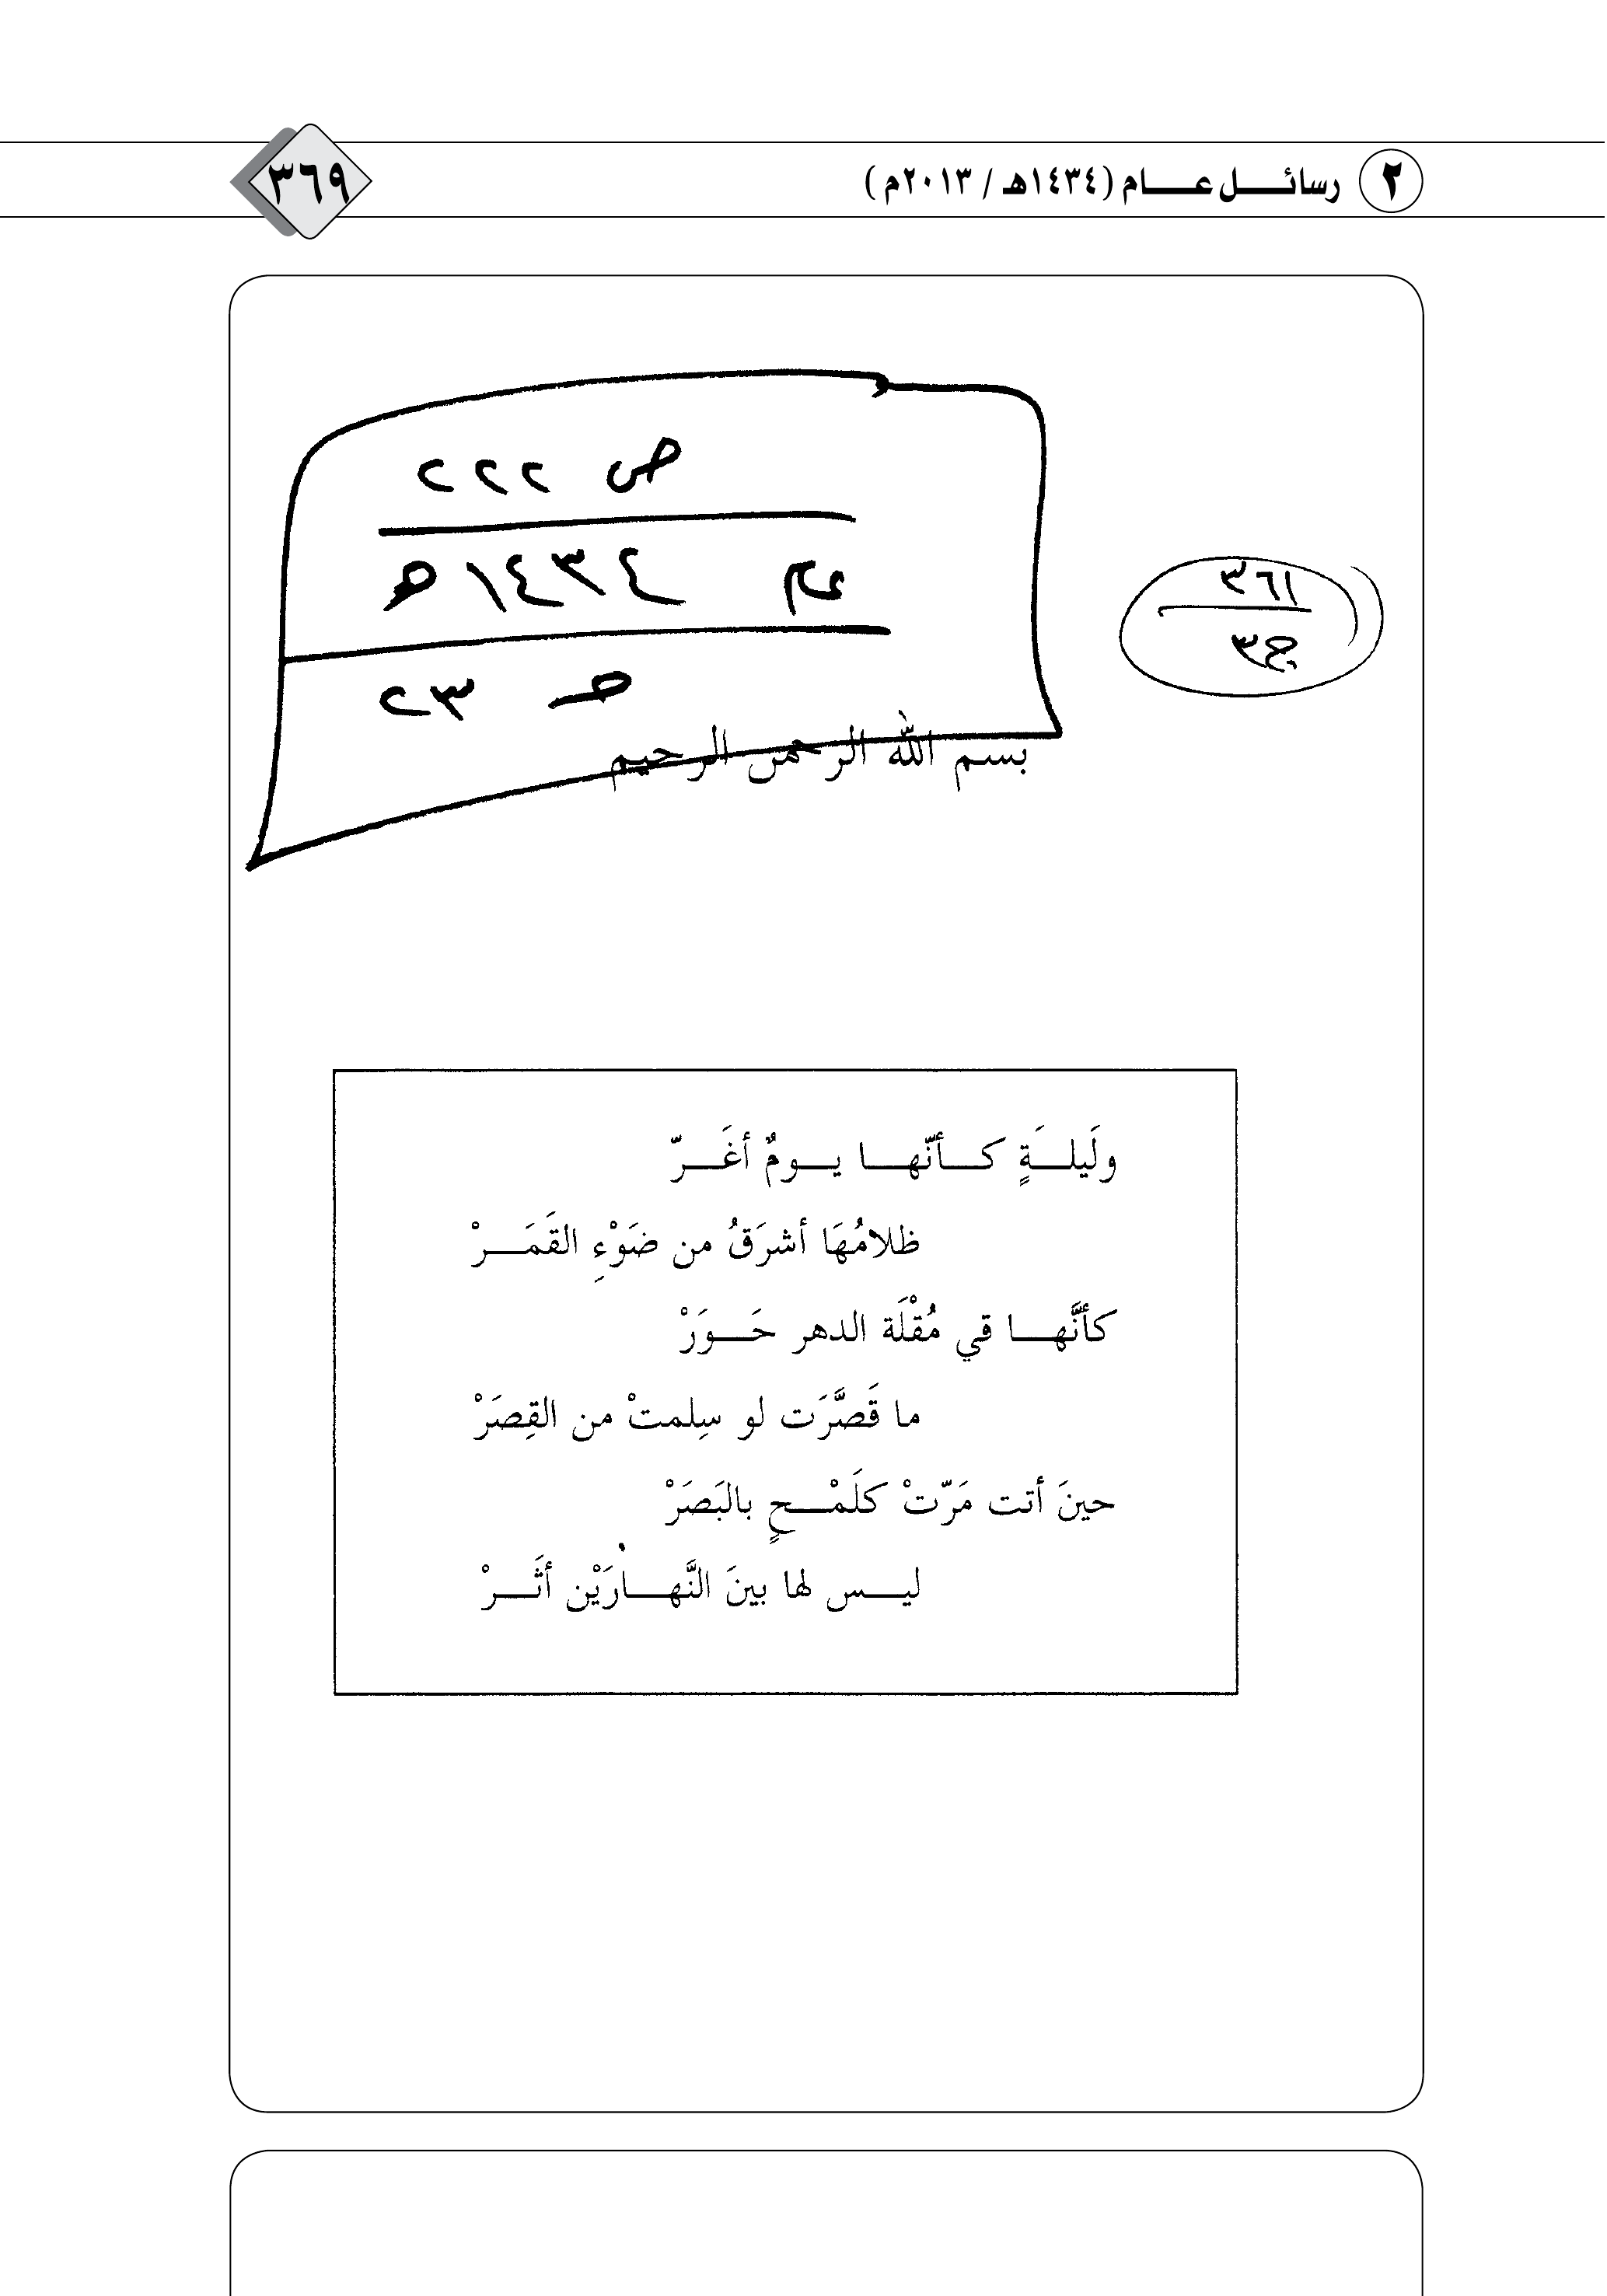 ٢ رسائـــل عـــام (١٤٣٤هـ / ٢٠١٣م)
٣٦٩
ص ٢٢٢
١٤٣٤ هـ
صـ ٢٣
٣٦١
ج٣
بسم الله الرحمن الرحيم
ولَيلـــةٍ كـــأنّهـــا يـــومٌ أغَـــرّ
ظلامُهَا أشرَقُ من ضَوْءِ القَمَـــرْ
كأنَّهـــا قي مُقْلَة الدهر حَـــوَرْ
ما قَصَّرَت لو سِلمتْ من القِصَرْ
حينَ أتت مَرّتْ كلَمْـــحٍ بالبَصَرْ
ليـــس لها بينَ النَّهـــارَيْن أثَـــرْ